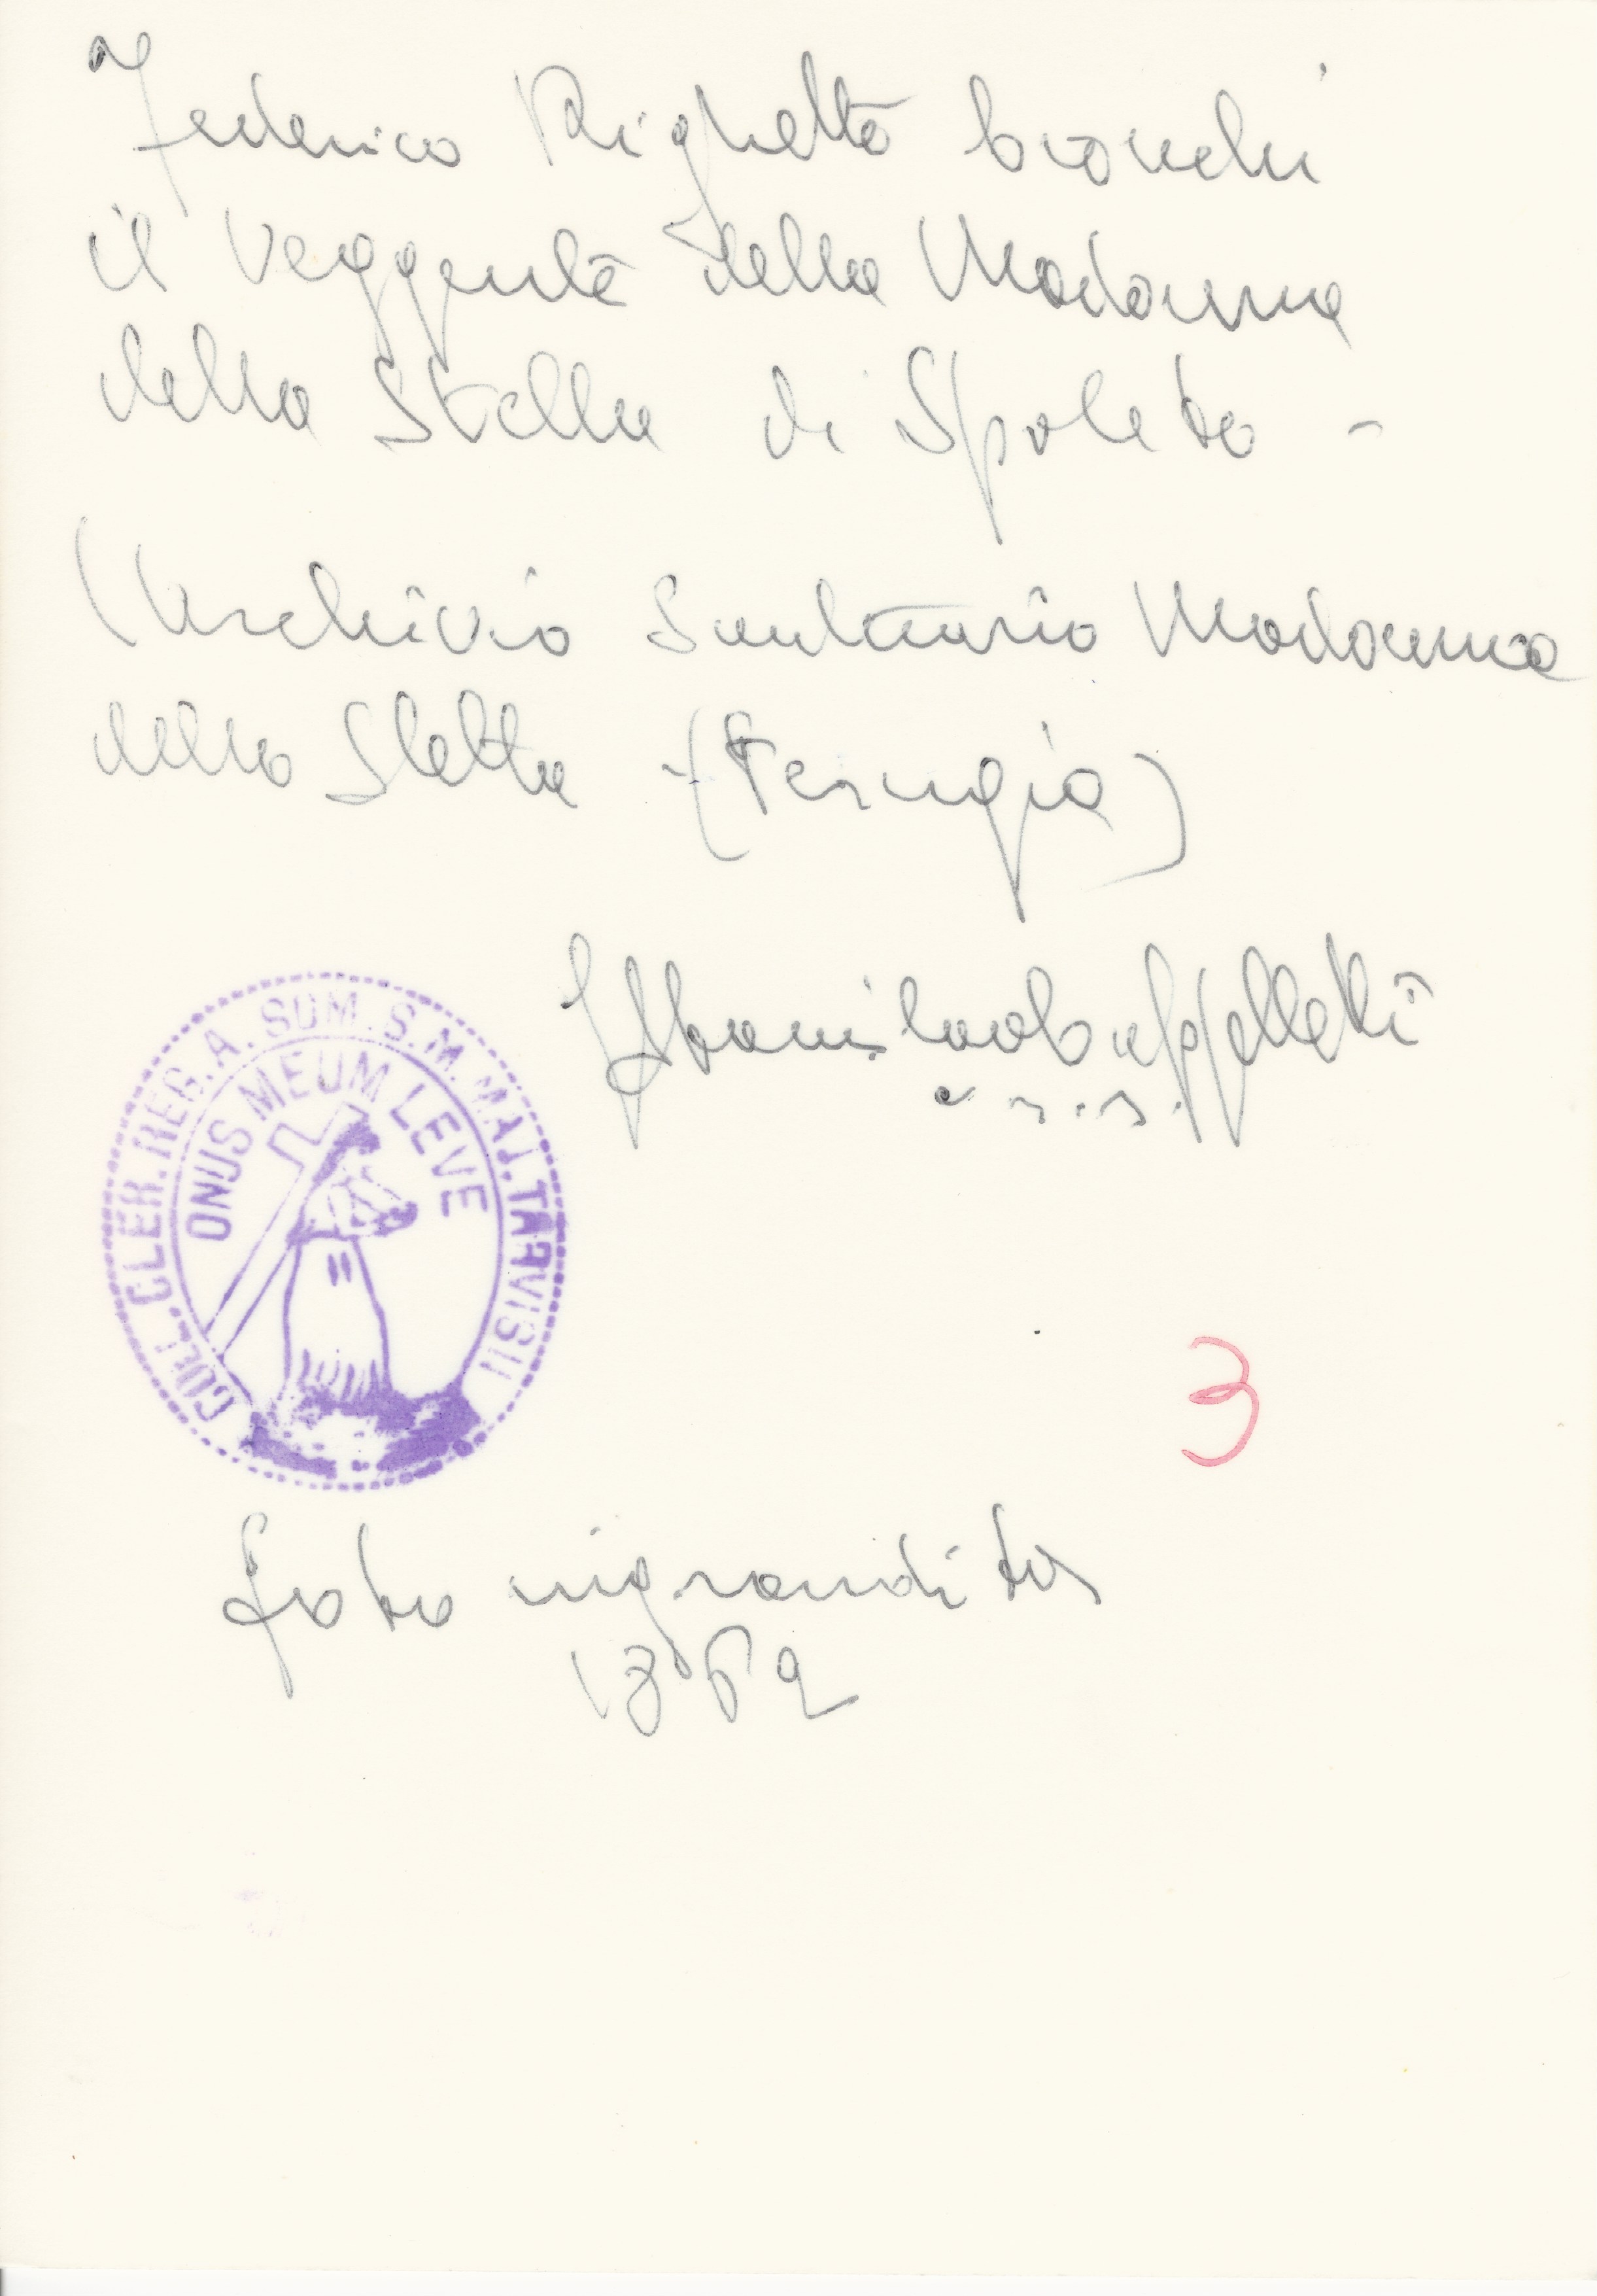 Federico Righetto Cionchi
il veggente della Madonna
della Stella di Spoleto -
(Archivio Santuario Madonna
della Stella - (Perugia)
P Stanislao Cappelletti
c.r.s.
COLL. CLER. REG. A. SOM. S. M. MAJ. TARVISII
ONUS MEUM LEVE
3
foto ingrandita